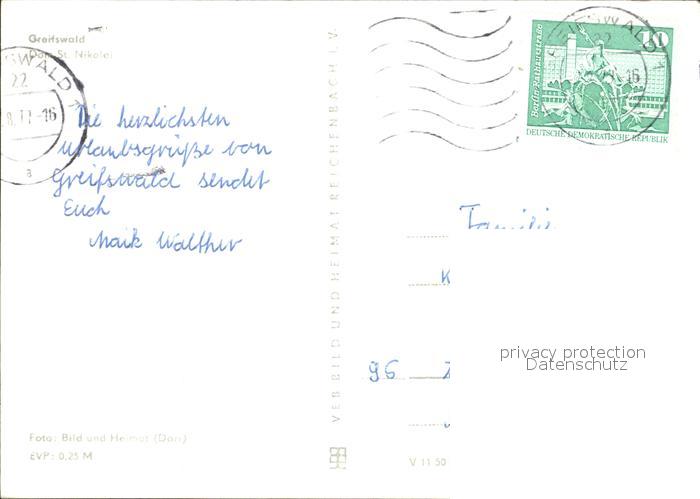 Greifswald
Dom St. Nikolai
Die herzlichsten
Urlaubsgrüße von
Greifswald sendet
Euch
Maik Walther
Foto: Bild und Heimat (Darr)
EVP: 0,25 M
VEB BILD UND HEIMAT REICHENBACH I. V.
V 11 50
GREIFSWALD 1
22
-16
a
Berlin-Rathausstraße
10
DEUTSCHE DEMOKRATISCHE REPUBLIK
Familie
K
96
privacy protection
Datenschutz